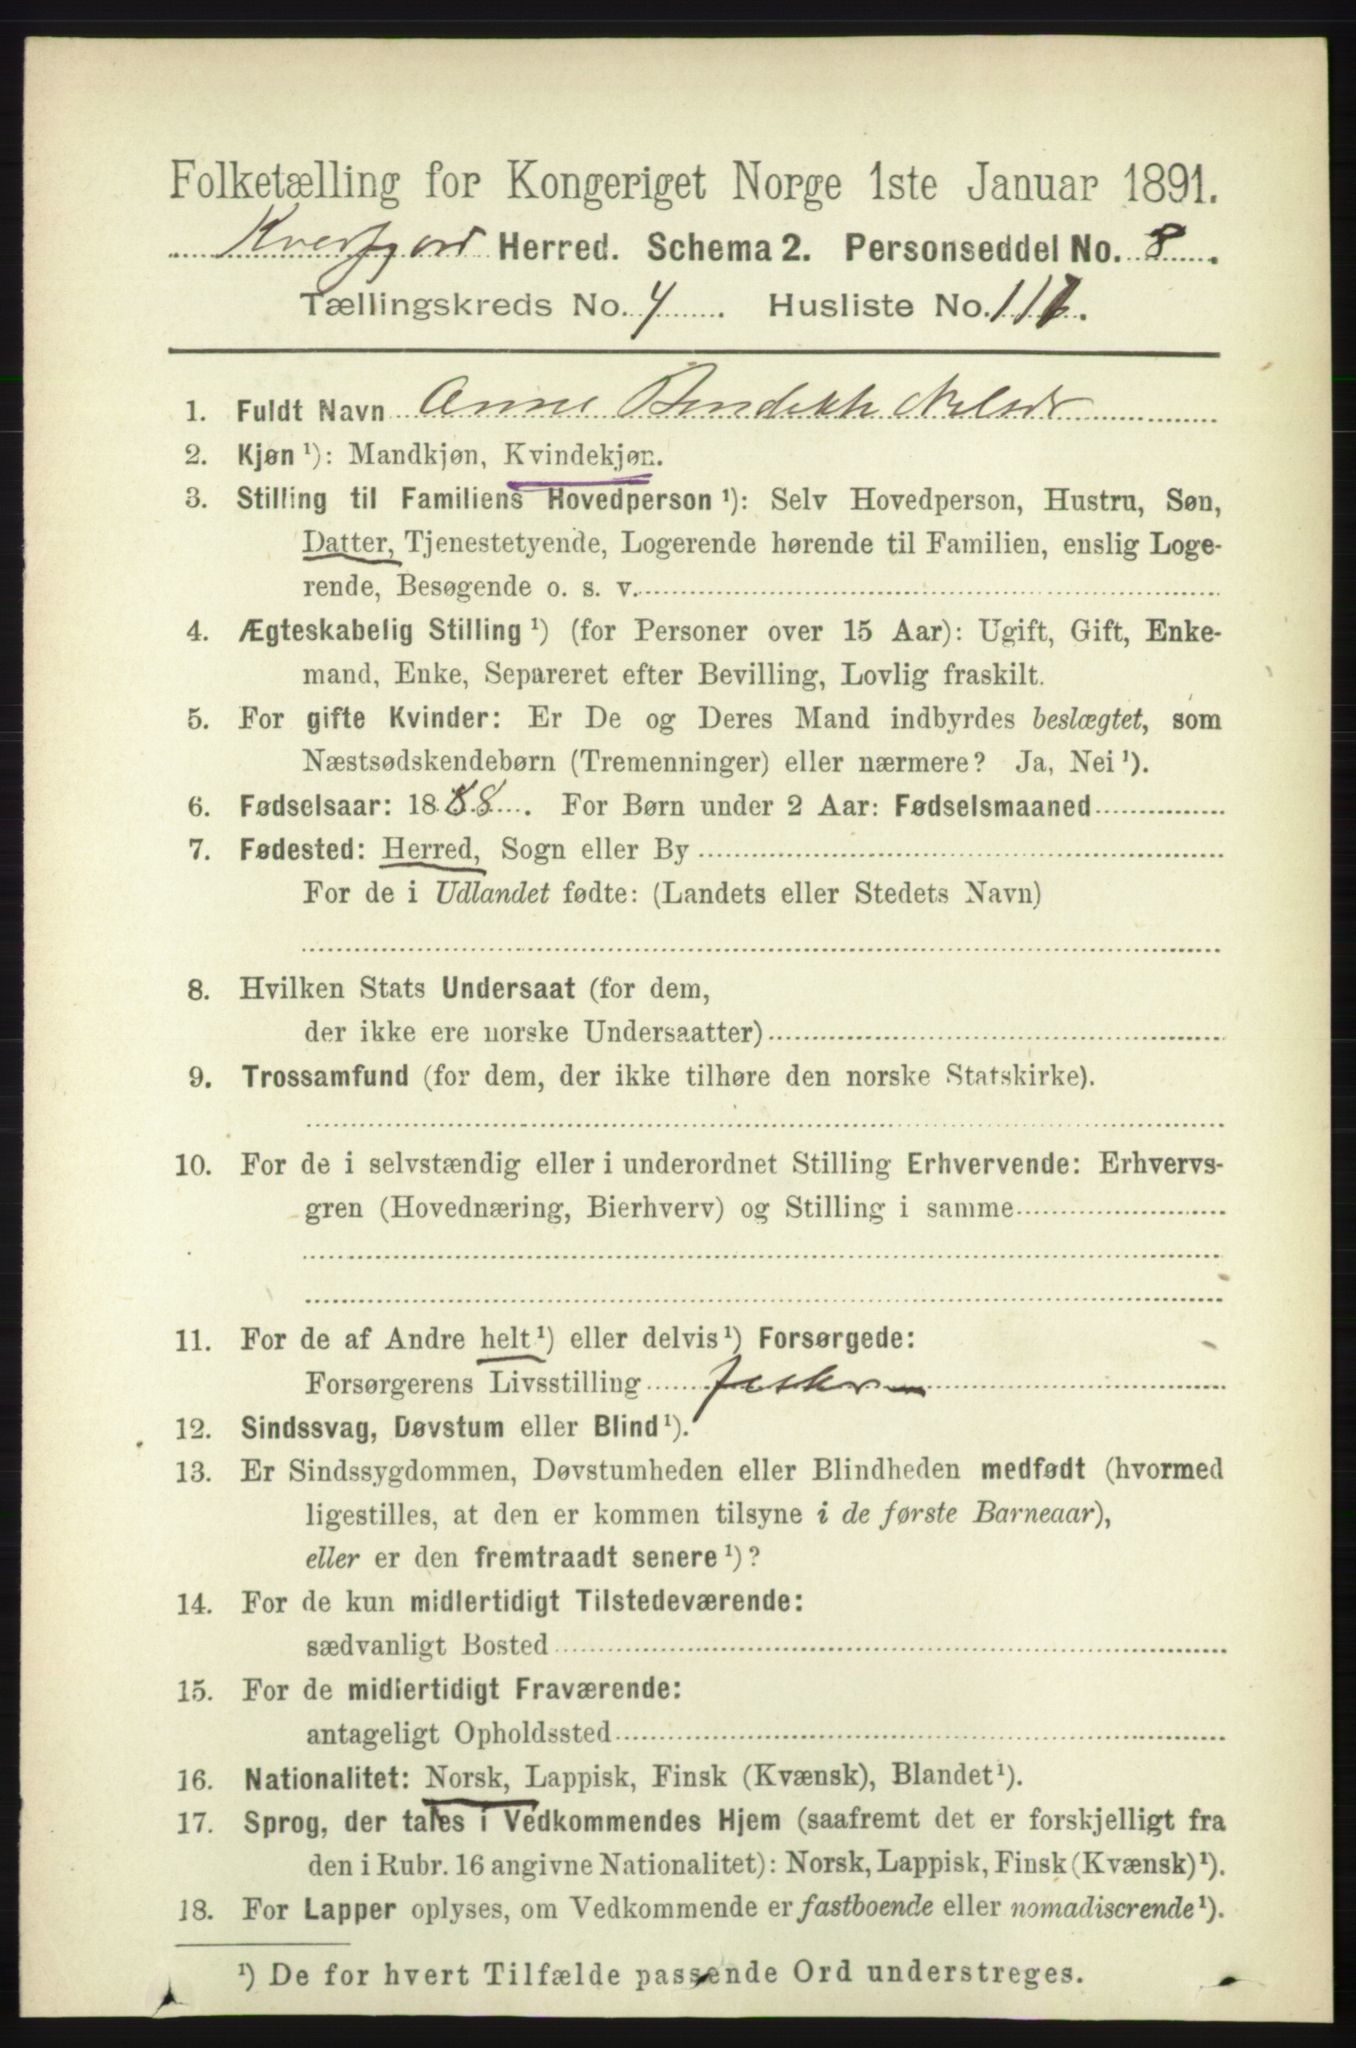 Folketælling for Kongeriget Norge 1ste Januar 1891.
Kvæfjord Herred. Schema 2. Personseddel No. 8.
Tællingskreds No. 4. Husliste No. 117.
1. Fuldt Navn Anne Bendikte Nilsdr
2. Kjøn ¹): Mandkjøn, Kvindekjøn.
3. Stilling til Familiens Hovedperson ¹): Selv Hovedperson, Hustru, Søn,
Datter, Tjenestetyende, Logerende hørende til Familien, enslig Loge-
rende, Besøgende o. s. v.
4. Ægteskabelig Stilling ¹) (for Personer over 15 Aar): Ugift, Gift, Enke-
mand, Enke, Separeret efter Bevilling, Lovlig fraskilt.
5. For gifte Kvinder: Er De og Deres Mand indbyrdes beslægtet, som
Næstsødskendebørn (Tremenninger) eller nærmere? Ja, Nei ¹).
6. Fødselsaar: 1888. For Børn under 2 Aar: Fødselsmaaned
7. Fødested: Herred, Sogn eller By
For de i Udlandet fødte: (Landets eller Stedets Navn)
8. Hvilken Stats Undersaat (for dem,
der ikke ere norske Undersaatter)
9. Trossamfund (for dem, der ikke tilhøre den norske Statskirke).
10. For de i selvstændig eller i underordnet Stilling Erhvervende: Erhvervs-
gren (Hovednæring, Bierhverv) og Stilling i samme
11. For de af Andre helt ¹) eller delvis ¹) Forsørgede:
Forsørgerens Livsstilling fisker
12. Sindssvag, Døvstum eller Blind ¹).
13. Er Sindssygdommen, Døvstumheden eller Blindheden medfødt (hvormed
ligestilles, at den er kommen tilsyne i de første Barneaar),
eller er den fremtraadt senere ¹)?
14. For de kun midlertidigt Tilstedeværende:
sædvanligt Bosted
15. For de midlertidigt Fraværende:
antageligt Opholdssted
16. Nationalitet: Norsk, Lappisk, Finsk (Kvænsk), Blandet ¹).
17. Sprog, der tales i Vedkommendes Hjem (saafremt det er forskjelligt fra
den i Rubr. 16 angivne Nationalitet): Norsk, Lappisk, Finsk (Kvænsk) ¹).
18. For Lapper oplyses, om Vedkommende er fastboende eller nomadiserende ¹).
¹) De for hvert Tilfælde passende Ord understreges.